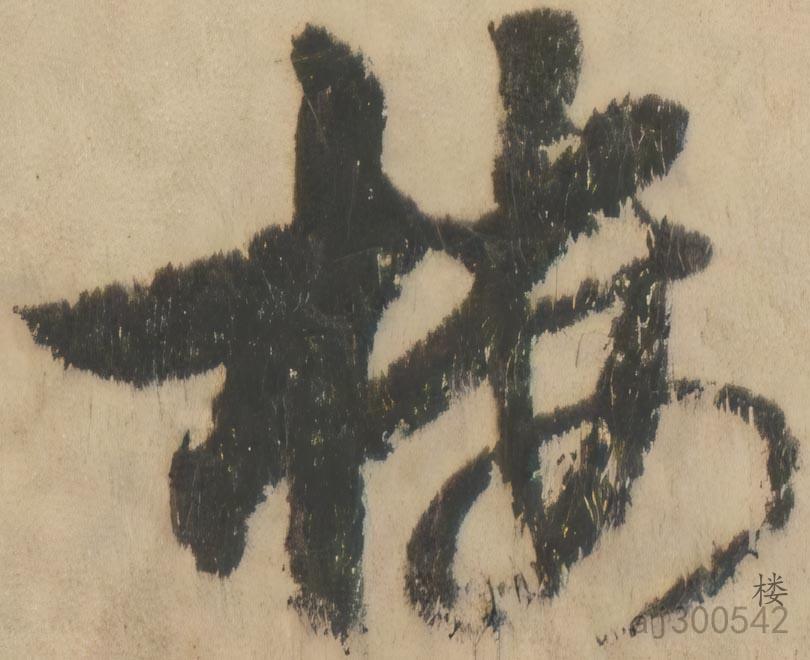 樓
楼
ajj300542